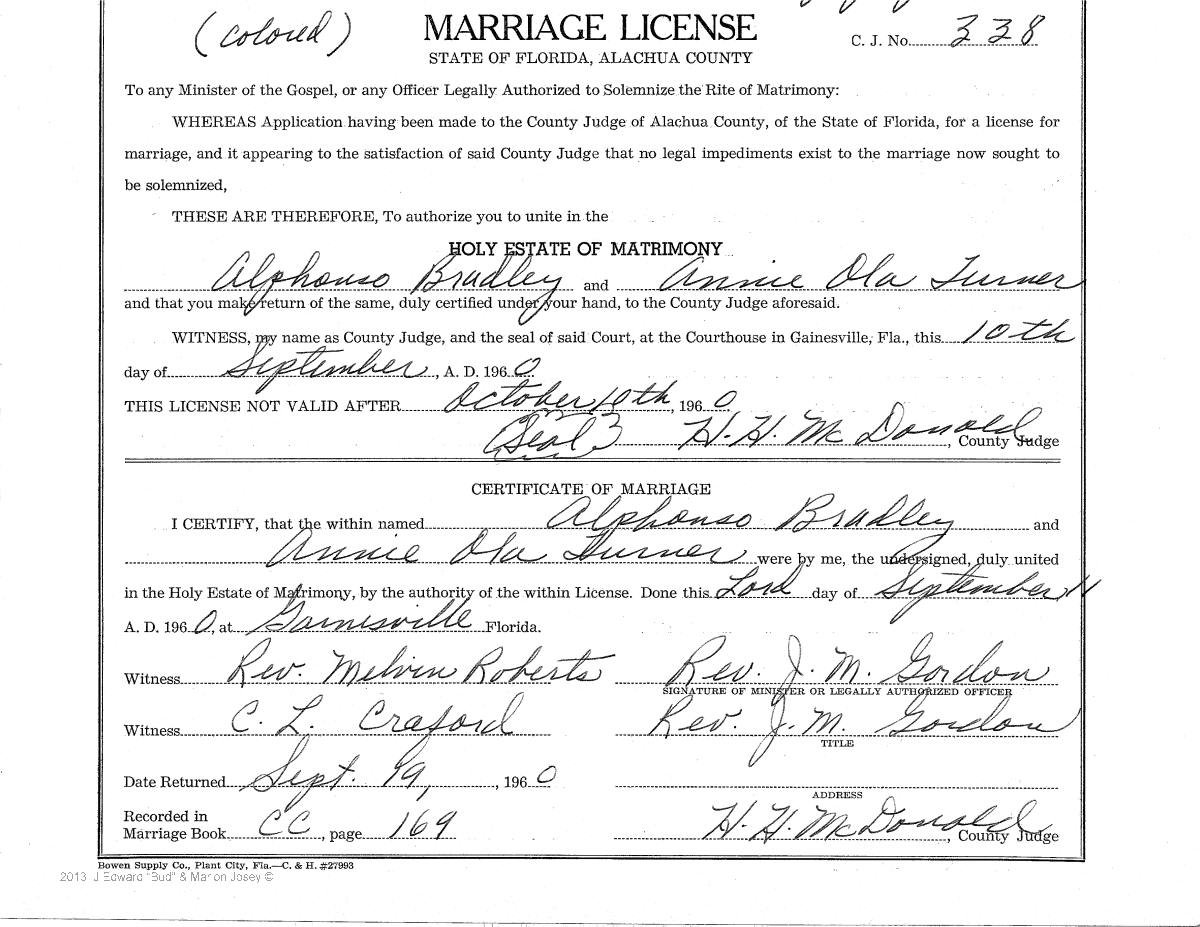 (colored)
MARRIAGE LICENSE
C. J. No. 338
STATE OF FLORIDA, ALACHUA COUNTY
To any Minister of the Gospel, or any Officer Legally Authorized to Solemnize the Rite of Matrimony:
WHEREAS Application having been made to the County Judge of Alachua County, of the State of Florida, for a license for
marriage, and it appearing to the satisfaction of said County Judge that no legal impediments exist to the marriage now sought to
be solemnized,
THESE ARE THEREFORE, To authorize you to unite in the
HOLY ESTATE OF MATRIMONY
Alphonso Bradley and Annie Ola Turner
and that you make return of the same, duly certified under your hand, to the County Judge aforesaid.
WITNESS, my name as County Judge, and the seal of said Court, at the Courthouse in Gainesville, Fla., this 10th
day of September, A. D. 1960
THIS LICENSE NOT VALID AFTER October 10th, 1960
(Seal) H. H. McDonald, County Judge
CERTIFICATE OF MARRIAGE
I CERTIFY, that the within named Alphonso Bradley and
Annie Ola Turner were by me, the undersigned, duly united
in the Holy Estate of Matrimony, by the authority of the within License. Done this Lord day of September 11
A. D. 1960, at Gainesville Florida.
Witness Rev. Melvin Roberts Rev. J. M. Gordon
SIGNATURE OF MINISTER OR LEGALLY AUTHORIZED OFFICER
Witness C. L. Craford Rev. J. M. Gordon
TITLE
Date Returned Sept. 19, 1960
ADDRESS
Recorded in
Marriage Book CC, page 169 H. H. McDonald, County Judge
Bowen Supply Co., Plant City, Fla.—C. & H. #27993
2013 J Edward "Bud" & Marion Josey ©